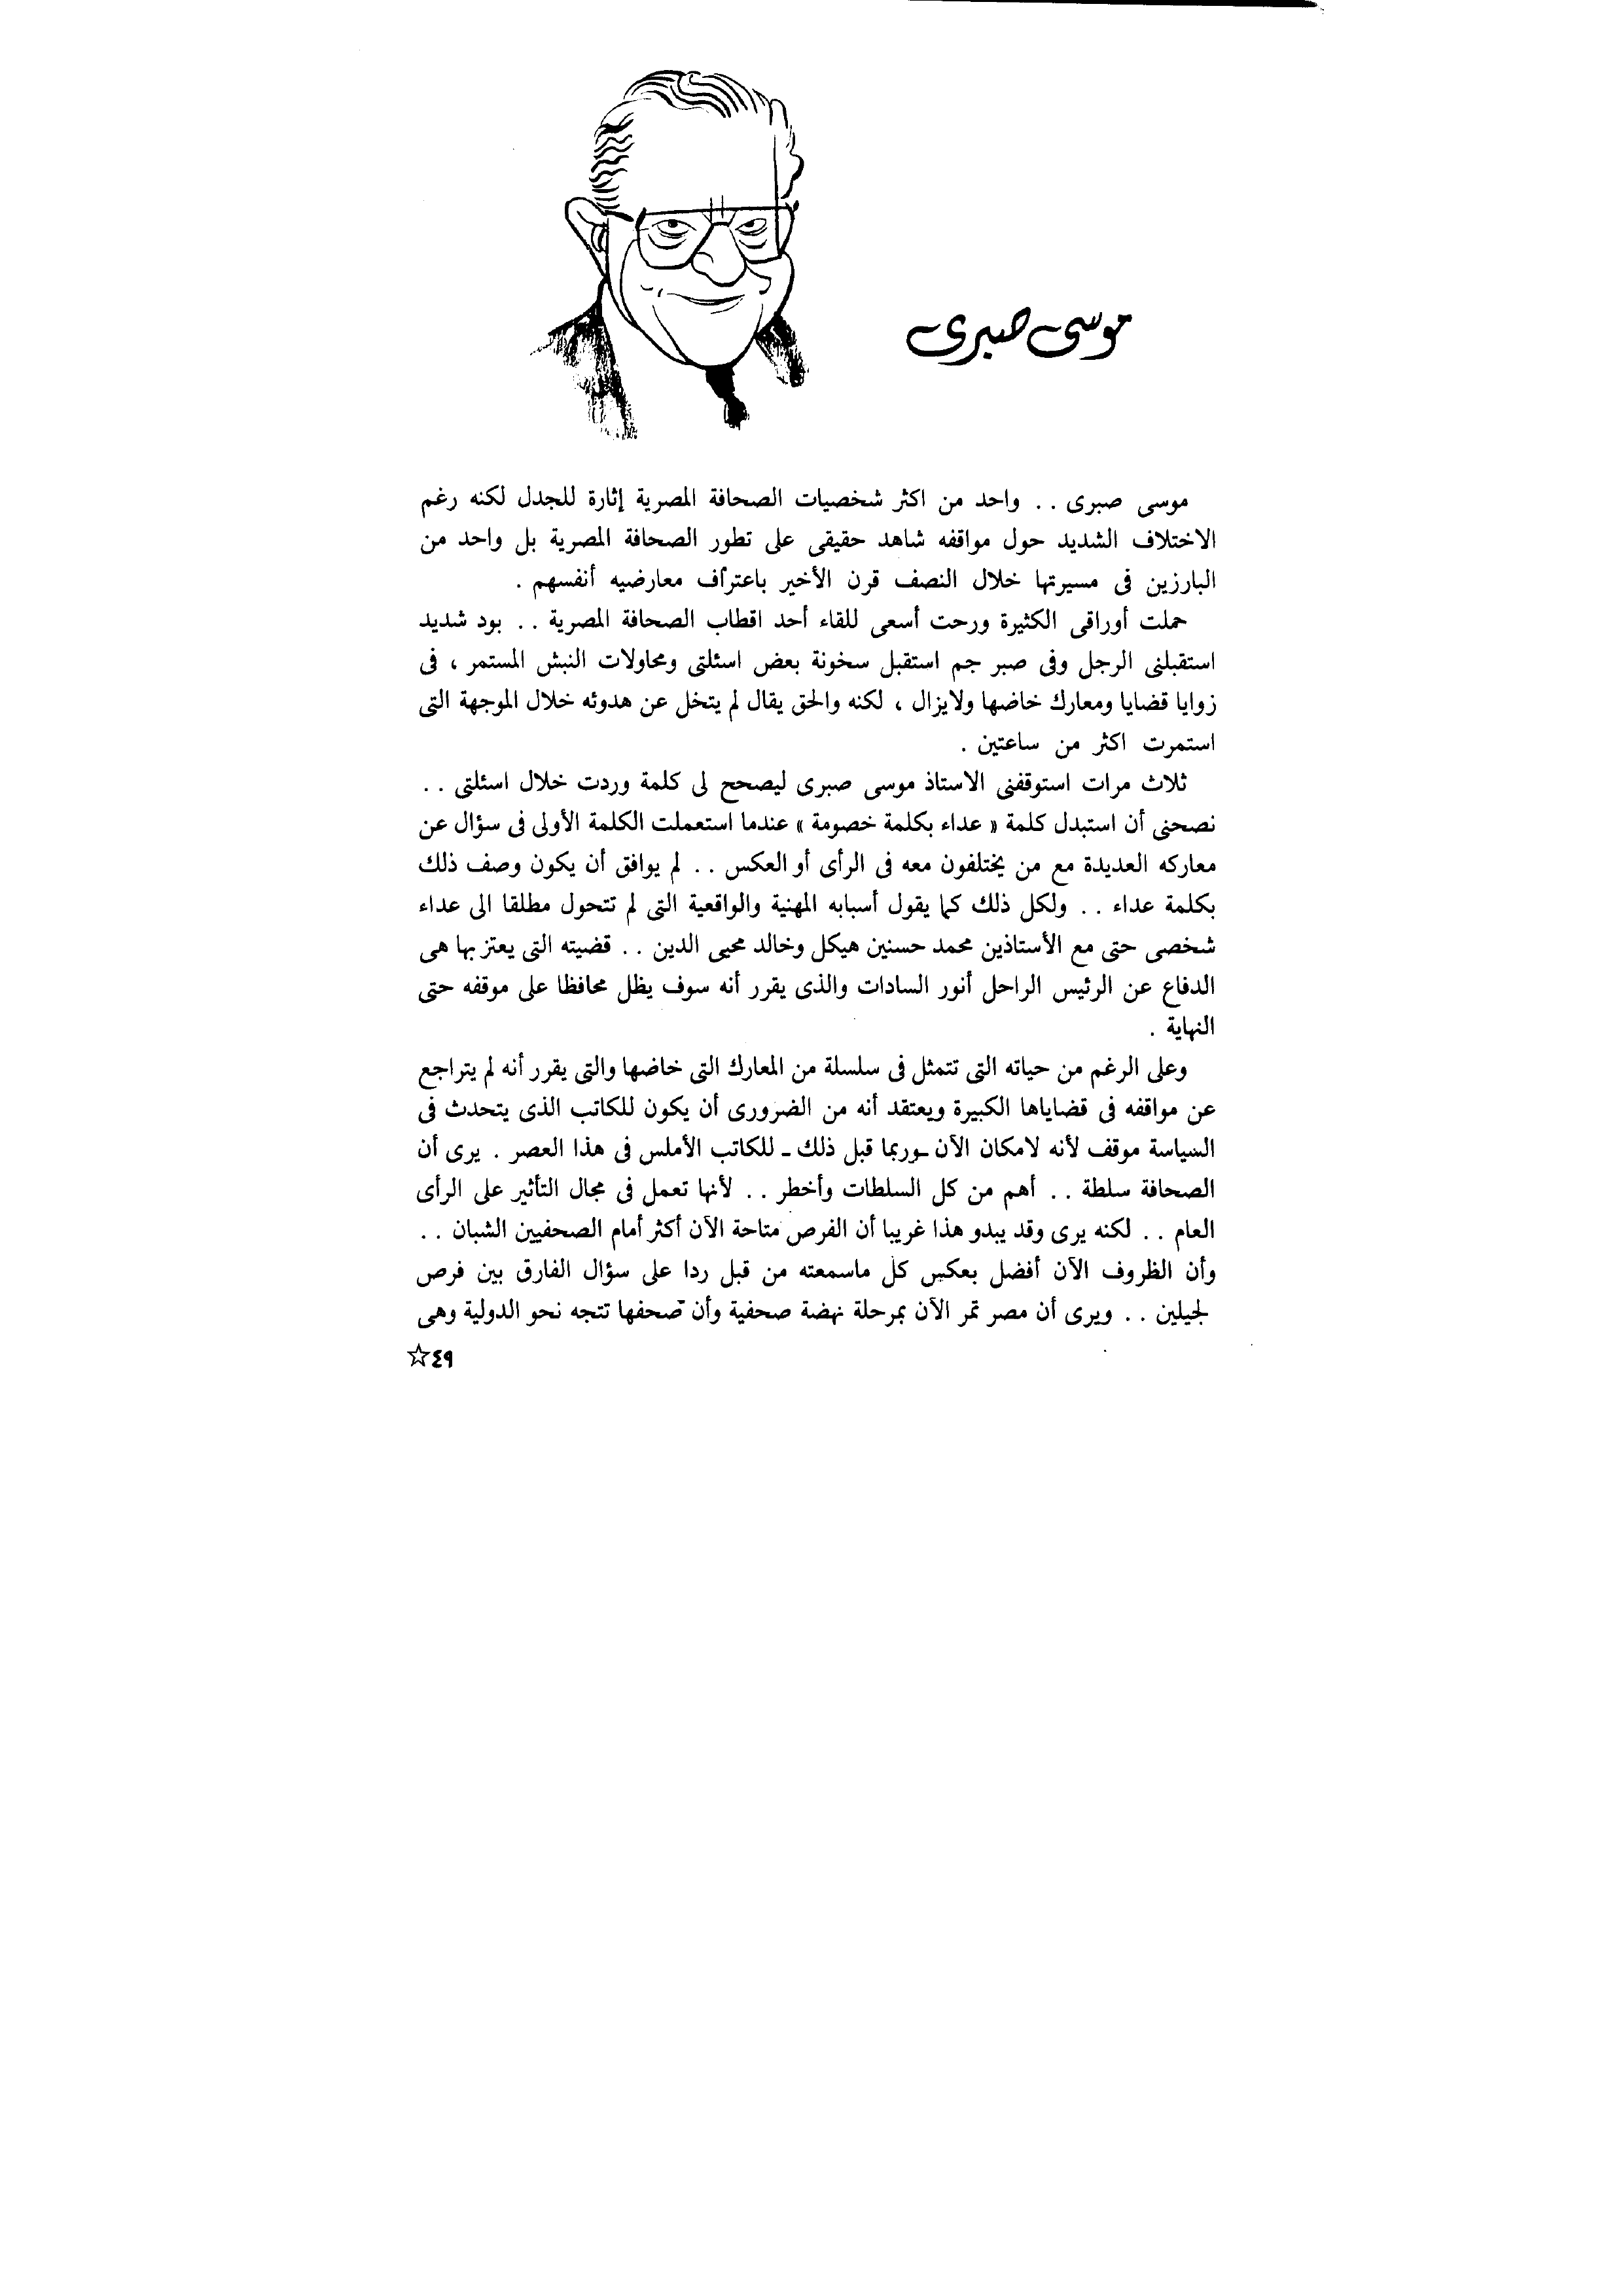 موسى صبرى
موسى صبرى . . واحد من اكثر شخصيات الصحافة المصرية إثارة للجدل لكنه رغم
الاختلاف الشديد حول مواقفه شاهد حقيقى على تطور الصحافة المصرية بل واحد من
البارزين فى مسيرتها خلال النصف قرن الأخير باعتراف معارضيه أنفسهم .
حملت أوراقى الكثيرة ورحت أسعى للقاء أحد اقطاب الصحافة المصرية . . بود شديد
استقبلنى الرجل وفى صبر جم استقبل سخونة بعض اسئلتى ومحاولات النبش المستمر ، فى
زوايا قضايا ومعارك خاضها ولايزال ، لكنه والحق يقال لم يتخل عن هدوئه خلال الموجهة التى
استمرت اكثر من ساعتين .
ثلاث مرات استوقفنى الاستاذ موسى صبرى ليصحح لى كلمة وردت خلال اسئلتى . .
نصحنى أن استبدل كلمة « عداء بكلمة خصومة » عندما استعملت الكلمة الأولى فى سؤال عن
معاركه العديدة مع من يختلفون معه فى الرأى أو العكس . . لم يوافق أن يكون وصف ذلك
بكلمة عداء . . ولكل ذلك كما يقول أسبابه المهنية والواقعية التى لم تتحول مطلقا الى عداء
شخصى حتى مع الأستاذين محمد حسنين هيكل وخالد محيى الدين . . قضيته التى يعتز بها هى
الدفاع عن الرئيس الراحل أنور السادات والذى يقرر أنه سوف يظل محافظا على موقفه حتى
النهاية .
وعلى الرغم من حياته التى تتمثل فى سلسلة من المعارك التى خاضها والتى يقرر أنه لم يتراجع
عن مواقفه فى قضاياها الكبيرة ويعتقد أنه من الضرورى أن يكون للكاتب الذى يتحدث فى
السياسة موقف لأنه لامكان الآن ـ وربما قبل ذلك ـ للكاتب الأملس فى هذا العصر . يرى أن
الصحافة سلطة . . أهم من كل السلطات وأخطر . . لأنها تعمل فى مجال التأثير على الرأى
العام . . لكنه يرى وقد يبدو هذا غريبا أن الفرص متاحة الآن أكثر أمام الصحفيين الشبان . .
وأن الظروف الآن أفضل بعكس كل ماسمعته من قبل ردا على سؤال الفارق بين فرص
لجيلين . . ويرى أن مصر تمر الآن بمرحلة نهضة صحفية وأن صحفها تتجه نحو الدولية وهى
٤٩☆